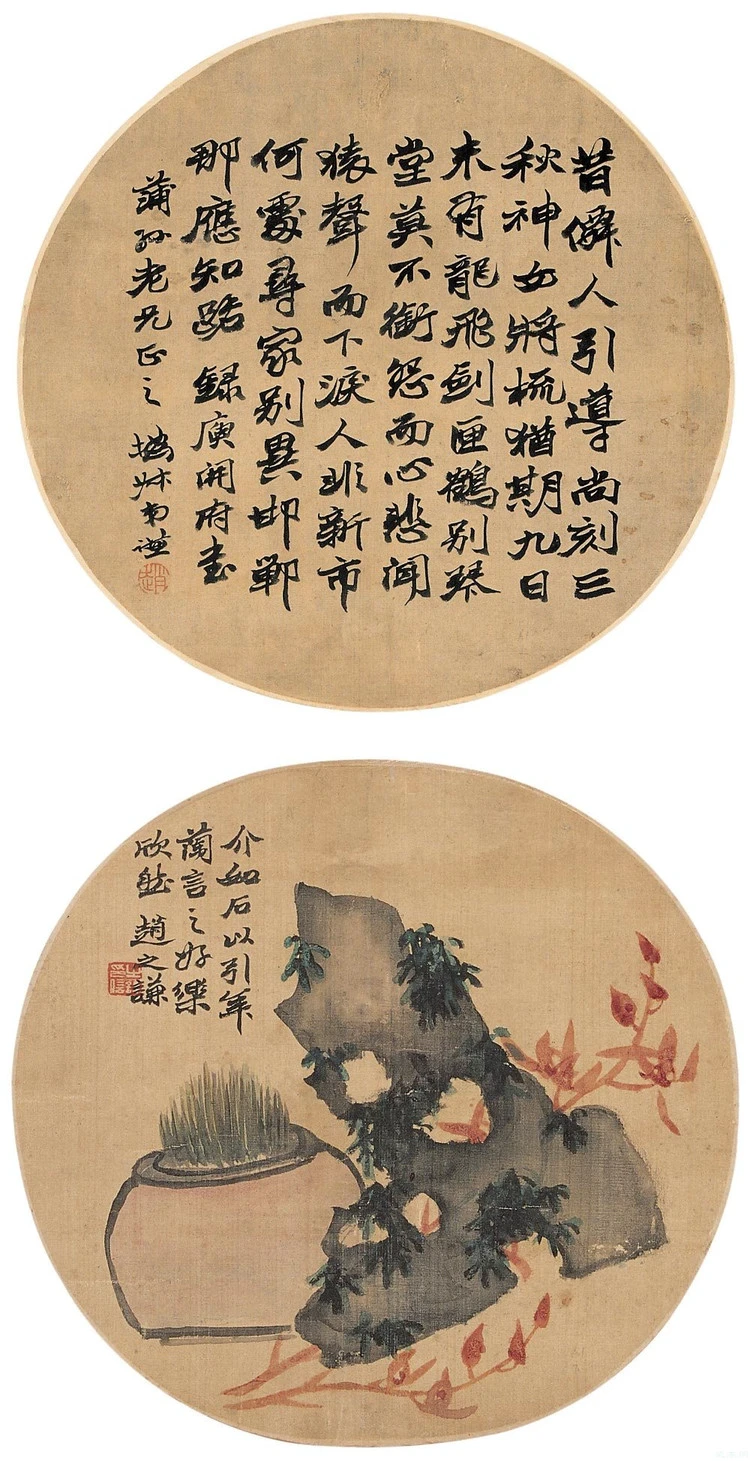 昔僊人引導尚刻三
秋神女將梳猶期九日
未有龍飛劍匣鶴別琴
堂莫不銜怨而心悲聞
猿聲而下淚人非新市
何處尋家別異邯鄲
那應知路 錄庾開府書
蒲孫老兄正之 撝叔弟謙
介如石以引年
蘭言之好樂
欣然 趙之謙